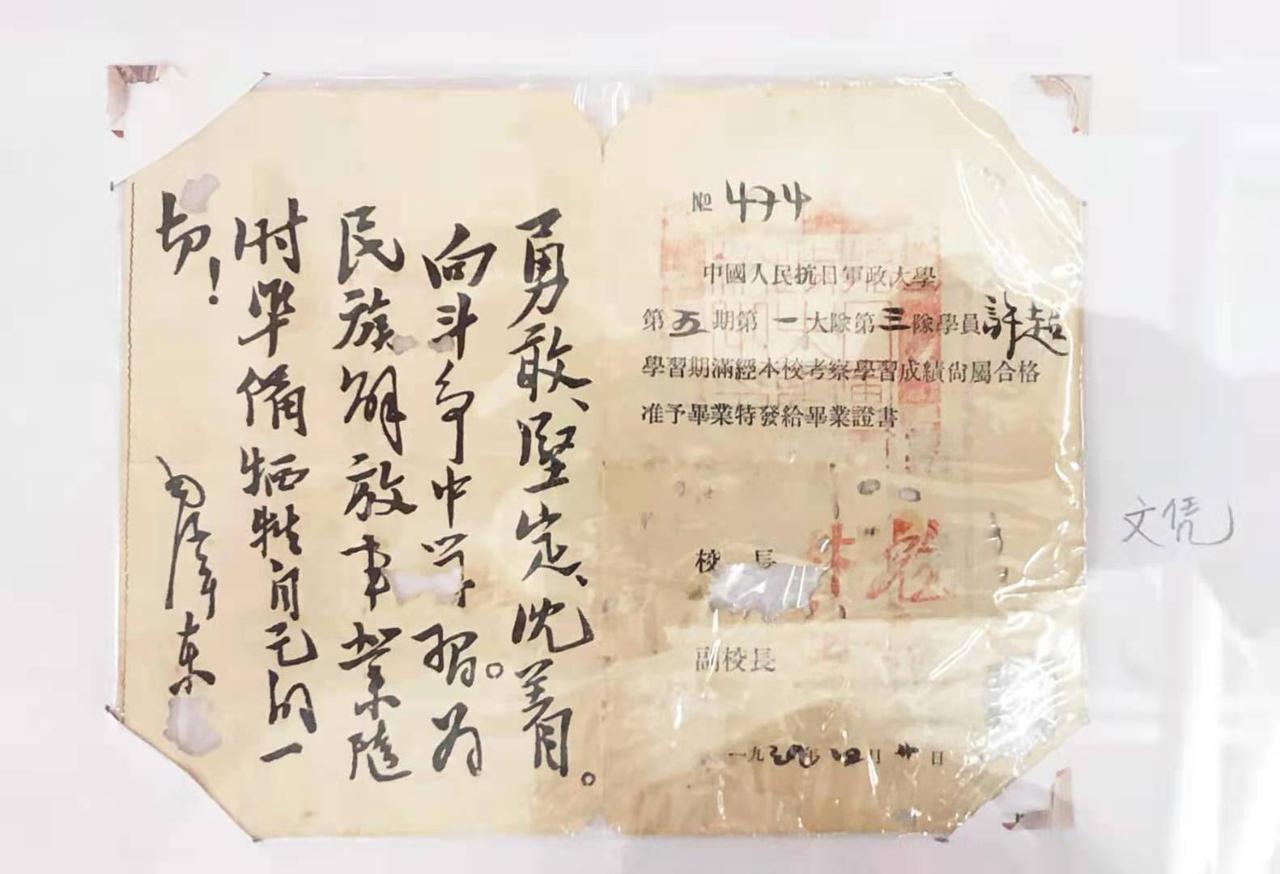 勇敢、堅定、沈着。
向斗争中学習。为
民族解放事業隨
时準備牺牲自己的一
切！
毛澤東
№ 474
中國人民抗日軍政大學
第五期第一大隊第三隊學員許超
學習期滿經本校考察學習成績尙屬合格
准予畢業特發給畢業證書
校長
副校長
一九年月日
文凭